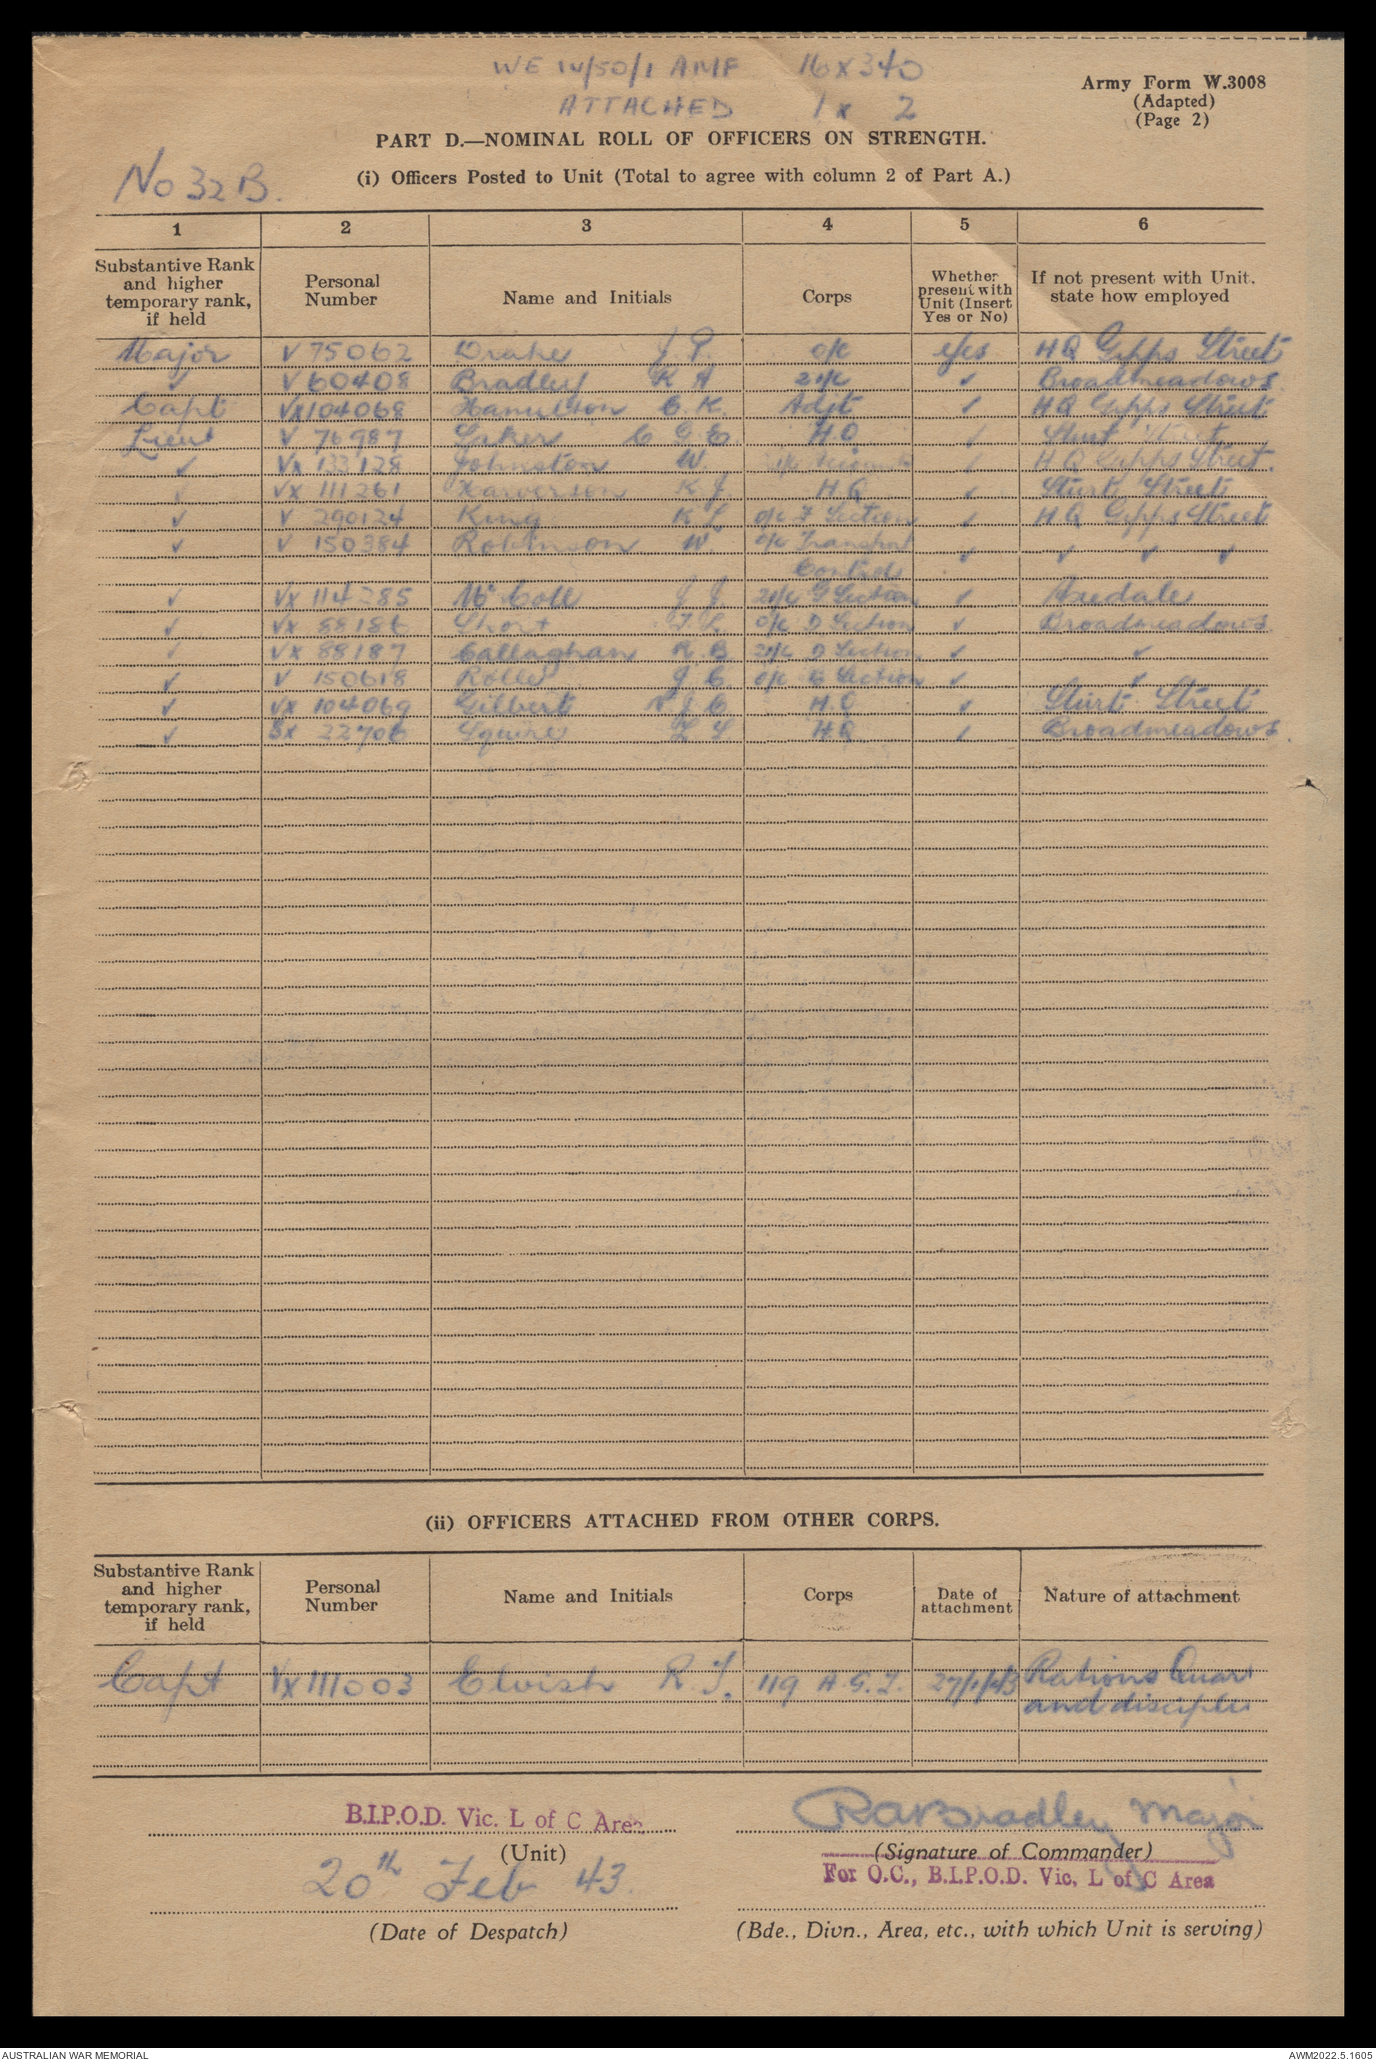 WE 14/50/1 AMF 16 x 340
ATTACHED 1 x 2
Army Form W.3008
(Adapted)
(Page 2)
PART D.—NOMINAL ROLL OF OFFICERS ON STRENGTH.
No 32 B.
(i) Officers Posted to Unit (Total to agree with column 2 of Part A.)
1 2 3 4 5 6
Substantive Rank and higher temporary rank, if held
Personal Number
Name and Initials
Corps
Whether present with Unit (Insert Yes or No)
If not present with Unit. state how employed
Major V 75062 Drake J. P. o/c yes HQ Gipps Street
✓ V 60408 Bradley R A 2i/c ✓ Broadmeadows
Capt VX104068 Hamilton C. K. Adjt ✓ HQ Gipps Street
Lieut V 76987 C G E. H.Q ✓ Sturt Street
✓ VX 133128 Johnston W. ✓ HQ Gipps Street.
✓ VX 111261 K J. H.Q ✓ Sturt Street
✓ V 290124 King K L o/c F Section ✓ HQ Gipps Street
✓ V 150384 Robinson W. o/c Transport ✓ ✓ ✓ ✓
Control
✓ VX 114285 McColl J J. 2i/c G Section ✓ Axedale
✓ VX 88186 Short F. L o/c D Section ✓ Broadmeadows
✓ VX 88187 Callaghan R. B 2i/c D Section ✓ ✓
✓ V 150618 J C. o/c Section ✓ ✓
✓ VX 104069 Gilbert J C H.Q ✓ Sturt Street
✓ SX 22706 Squire H.Q ✓ Broadmeadows.
(ii) OFFICERS ATTACHED FROM OTHER CORPS.
Substantive Rank and higher temporary rank, if held
Personal Number
Name and Initials
Corps
Date of attachment
Nature of attachment
Capt VX111003 Elvish R. J. 119 A.G.T. 27/1/43 Rations Quart
and disciplin
B.I.P.O.D. Vic. L of C Area
(Unit)
RABradley Major
(Signature of Commander)
For O.C., B.I.P.O.D. Vic, L of C Area
20th Feb 43.
(Date of Despatch)
(Bde., Divn., Area, etc., with which Unit is serving)
AUSTRALIAN WAR MEMORIAL
AWM2022.5.1605